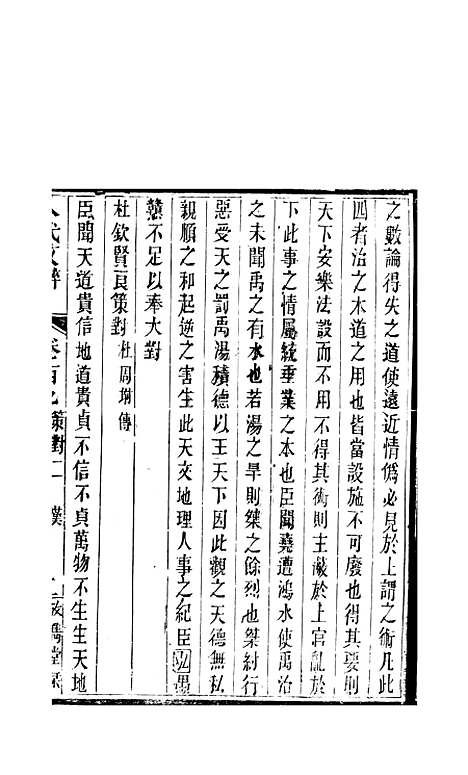 之數論得失之道使遠近情僞必見於上謂之術凡此
四者治之木道之用也皆當設施不可廢也得其要則
天下安樂法設而不用不得其術則主蔽於上官亂於
下此事之情屬統垂業之本也臣聞堯遭鴻水使禹治
之未聞禹之有水也若湯之旱則桀之餘烈也桀紂行
惡受天之罰禹湯積德以王天下因此觀之天德無私
親順之和起逆之害生此天文地理人事之紀臣弘愚
戇不足以奉大對
杜欽賢良策對杜周傳
臣聞天道貴信地道貴貞不信不貞萬物不生生天地
八代文粹
卷百七 策對二 漢